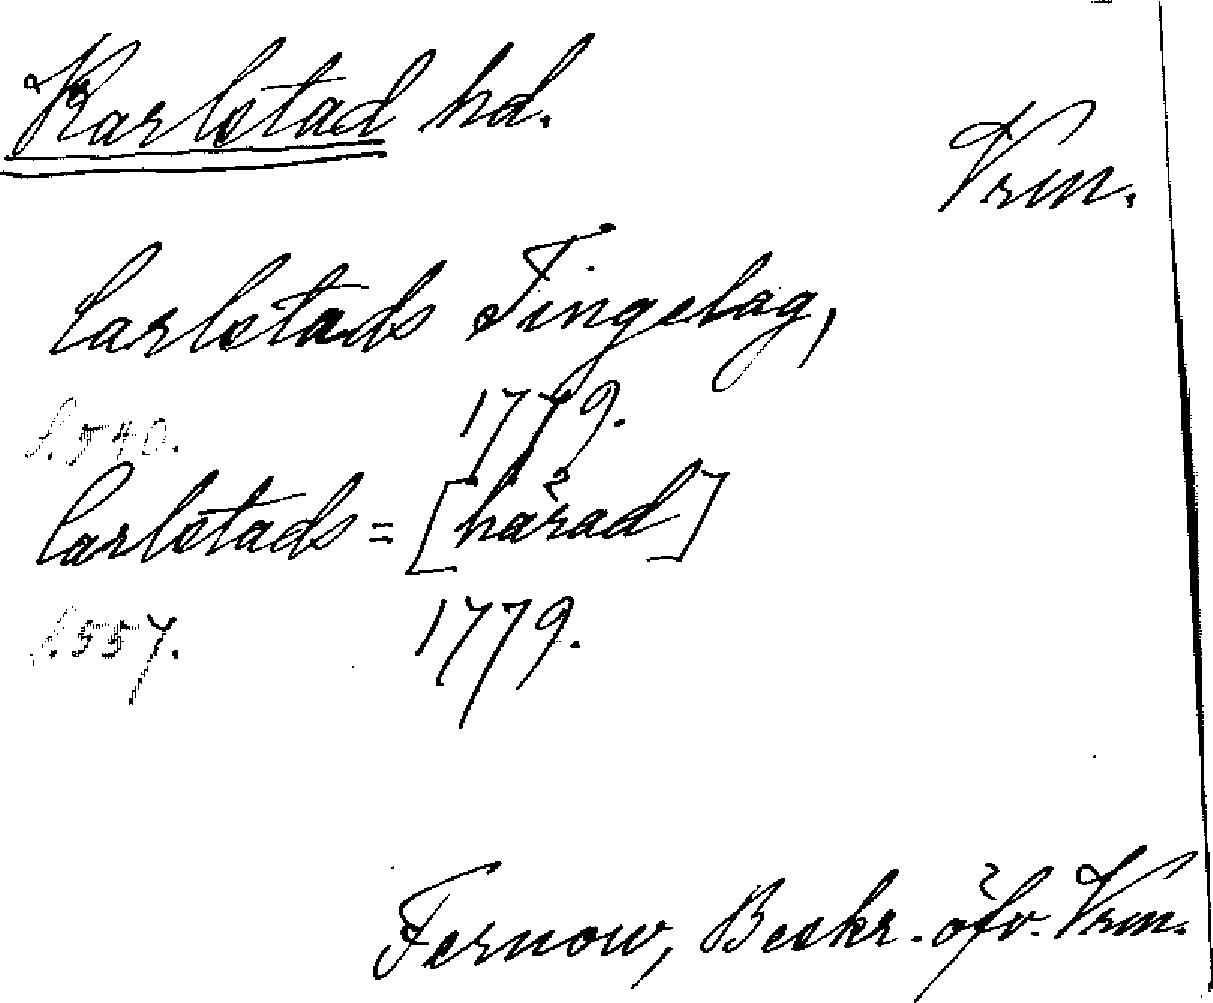 Karlstad hd.
Vrm.
Carlstads Tingslag,
s. 540. 1779.
Carlstads = [härad]
s. 557. 1779.
Fernow, Beskr. öfv. Vrm.